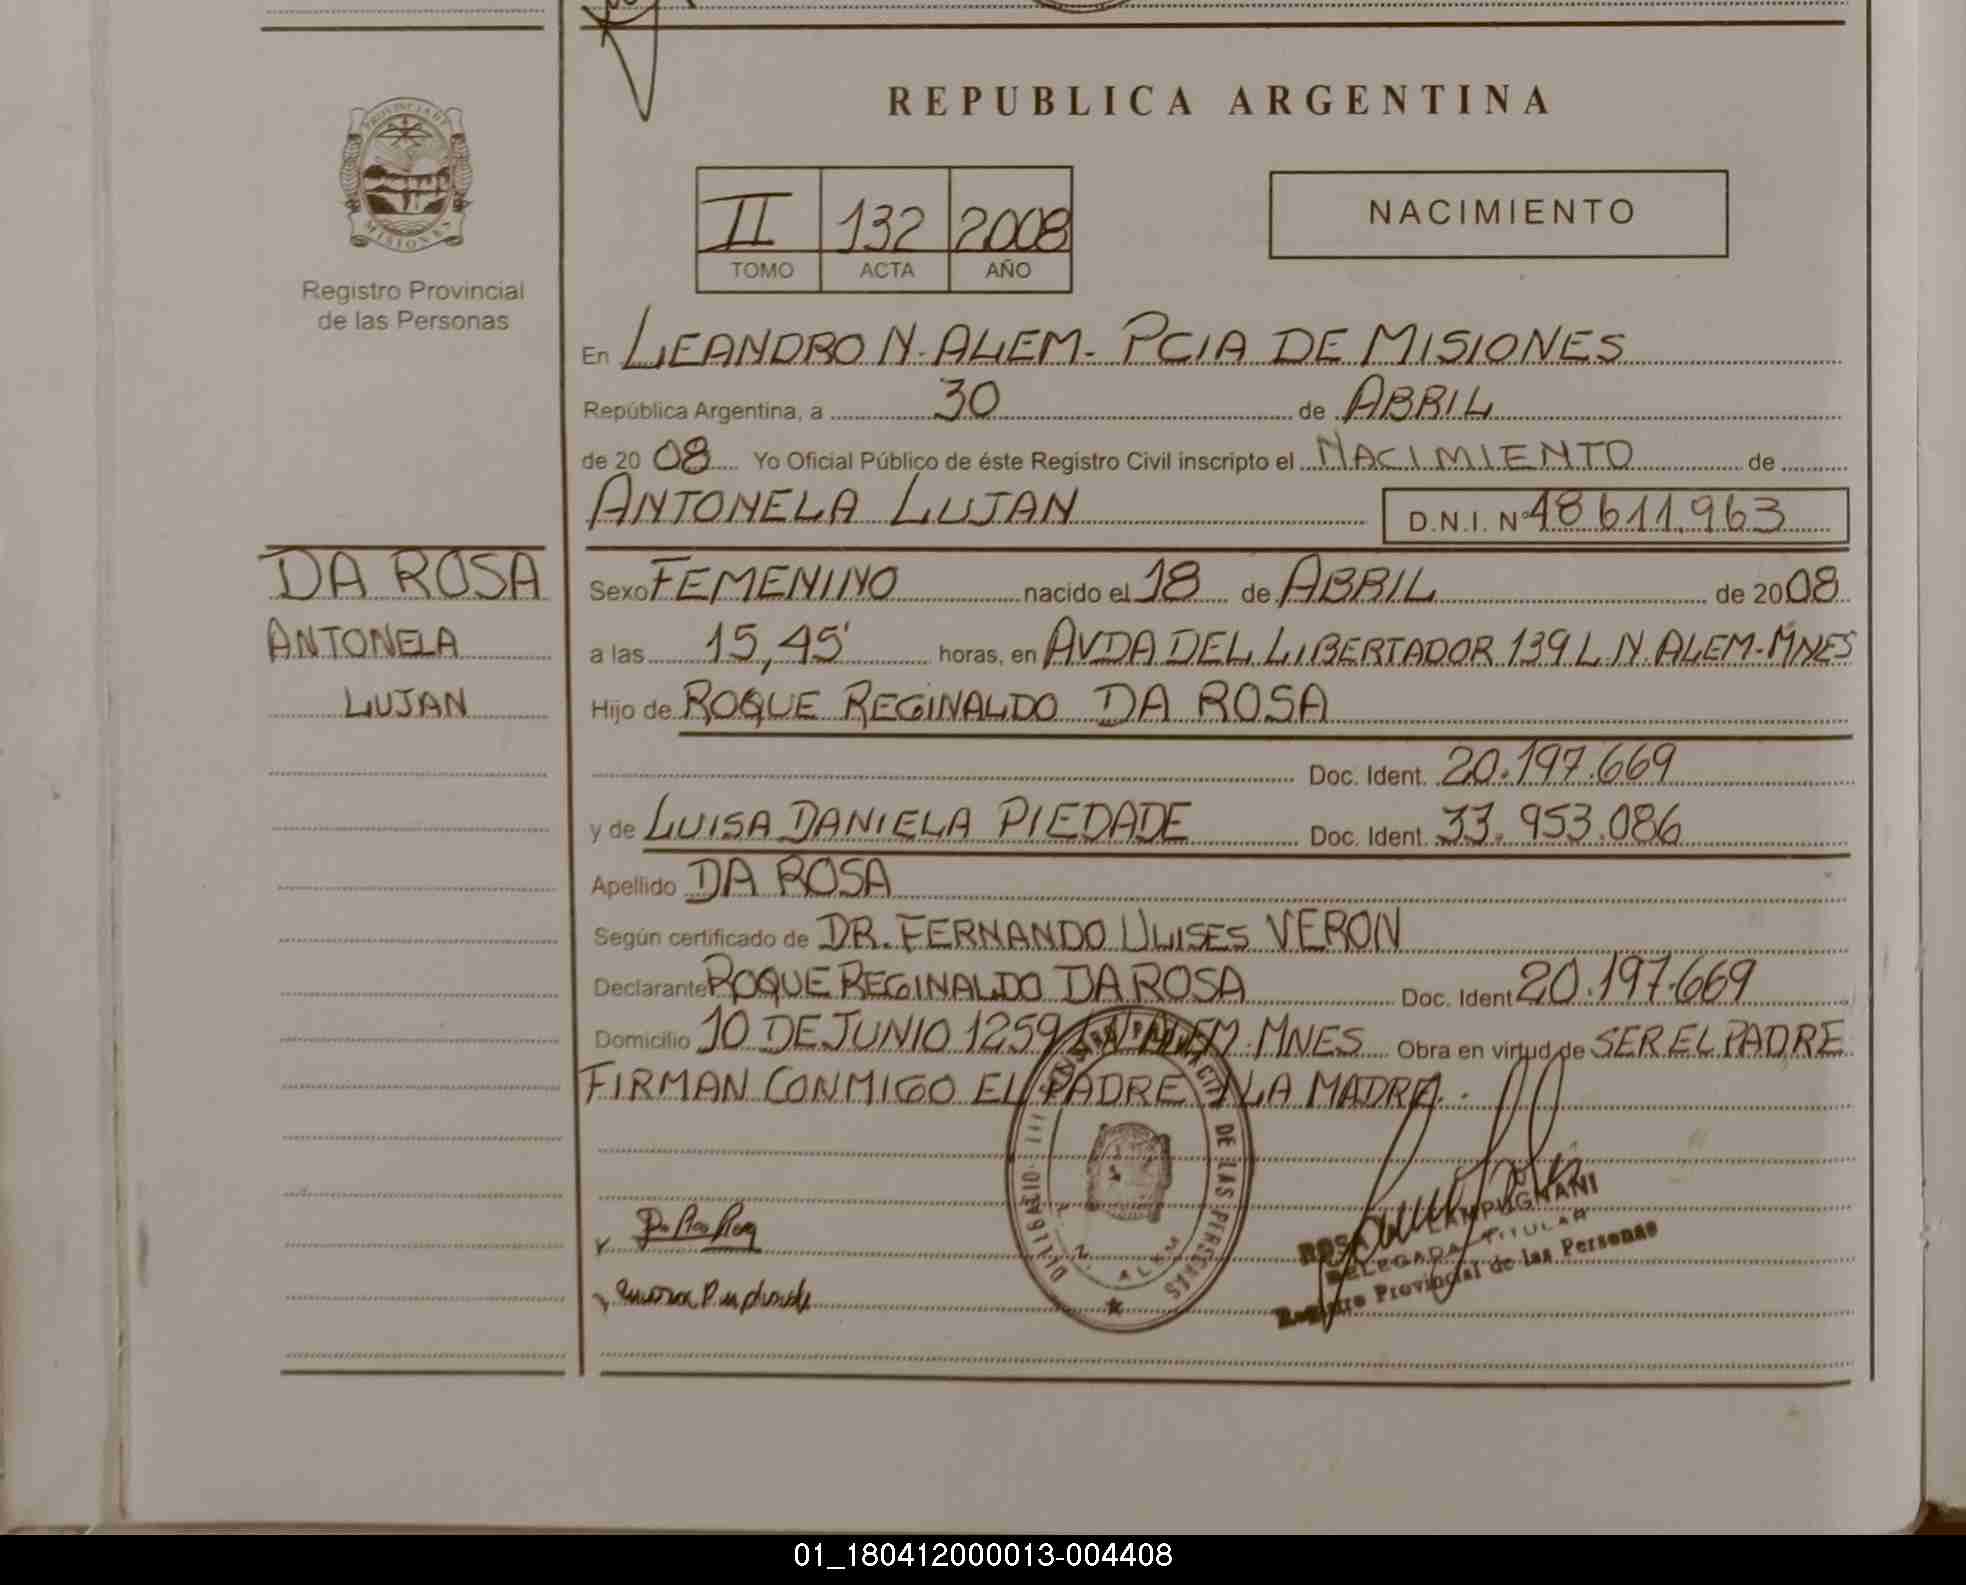 REPUBLICA ARGENTINA
PROVINCIA DE MISIONES
Registro Provincial
de las Personas
II 132 2008
TOMO ACTA AÑO
NACIMIENTO
En LEANDRO N. ALEM - PCIA DE MISIONES
República Argentina, a 30 de ABRIL
de 20 08 Yo Oficial Público de éste Registro Civil inscripto el NACIMIENTO de
ANTONELA LUJAN D.N.I. Nº 48611.963
DA ROSA
ANTONELA
LUJAN
Sexo FEMENINO nacido el 18 de ABRIL de 2008
a las 15,45' horas, en AVDA DEL LIBERTADOR 139 L.N. ALEM - MNES
Hijo de ROQUE REGINALDO DA ROSA
Doc. Ident. 20.197.669
y de LUISA DANIELA PIEDADE Doc. Ident. 33.953.086
Apellido DA ROSA
Según certificado de DR. FERNANDO ULISES VERON
Declarante ROQUE REGINALDO DA ROSA Doc. Ident 20.197.669
Domicilio 10 DE JUNIO 1259 L.N. ALEM. MNES Obra en virtud de SER EL PADRE
FIRMAN CONMIGO EL PADRE Y LA MADRE.
DE LAS PERSONAS
N. ALEM
ROSA LAMPUGNANI
DELEGADA TITULAR
Registro Provincial de las Personas
01_180412000013-004408